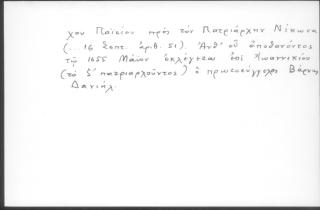 χου Παϊσίου πρὸς τὸν Πατριάρχην Νίκωνα
(... 16 Σεπτ. ἀριθ. 51). Ἀνθ' οὗ ἀποθανόντος
τῷ 1655 Μάιον ἐκλέγεται ἐπὶ Ἰωαννικίου
(τὸ δ' πατριαρχοῦντος) ὁ πρωτοσύγγελος Βάρνης
Δανιήλ.